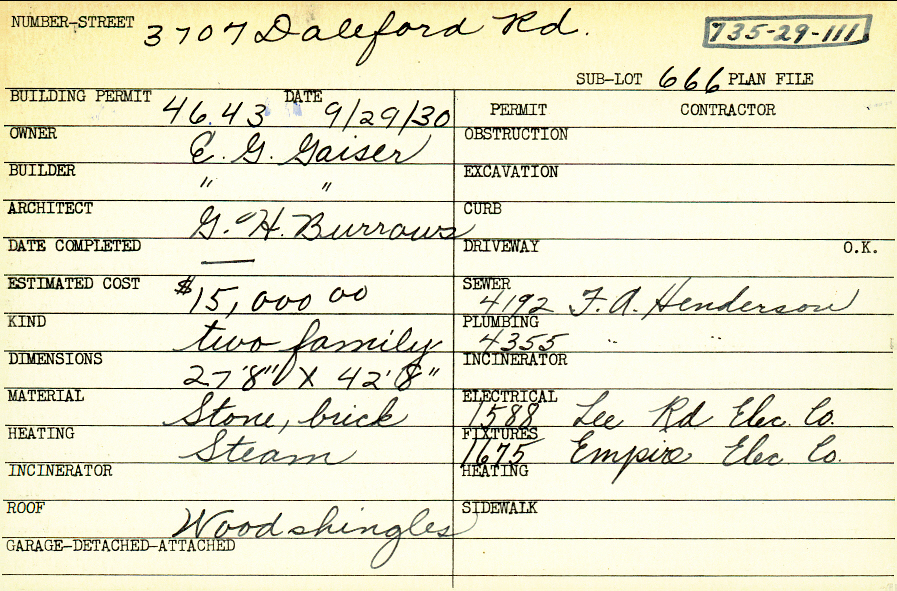 NUMBER-STREET 3707 Daleford Rd. 735-29-111
SUB-LOT 666 PLAN FILE
BUILDING PERMIT 4643 DATE 9/29/30 PERMIT CONTRACTOR
OWNER E. G. Gaiser OBSTRUCTION
BUILDER " " EXCAVATION
ARCHITECT G. H. Burrows CURB
DATE COMPLETED — DRIVEWAY O.K.
ESTIMATED COST $15,000 00 SEWER 4192 F. A. Henderson
KIND two family PLUMBING 4355 " "
DIMENSIONS 27'8" X 42'8" INCINERATOR
MATERIAL Stone, brick ELECTRICAL 1588 Lee Rd Elec. Co.
HEATING Steam FIXTURES 1675 Empire Elec. Co.
INCINERATOR HEATING
ROOF Wood shingles SIDEWALK
GARAGE-DETACHED-ATTACHED